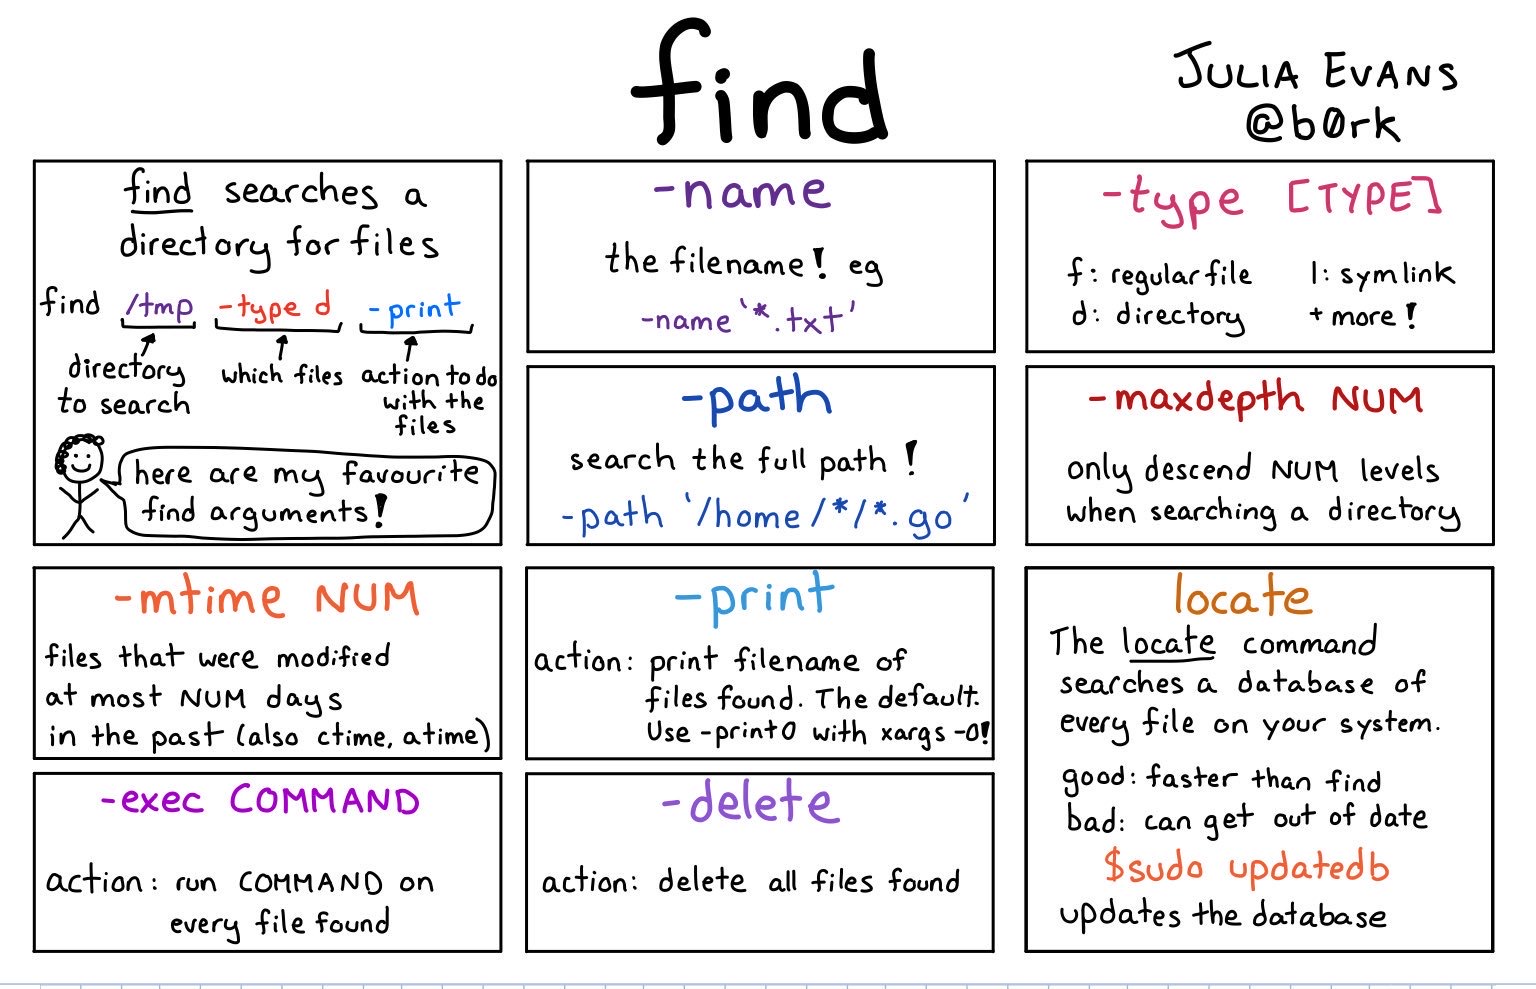 find
JULIA EVANS
@b0rk
find searches a
directory for files
find /tmp -type d -print
directory
to search
which files
action to do
with the
files
here are my favourite
find arguments!
-name
the filename! eg
-name '*.txt'
-type [TYPE]
f: regular file
l: symlink
d: directory
+ more!
-path
search the full path!
-path '/home/*/*.go'
-maxdepth NUM
only descend NUM levels
when searching a directory
-mtime NUM
files that were modified
at most NUM days
in the past (also ctime, atime)
-print
action: print filename of
files found. The default.
Use -print0 with xargs -0!
locate
The locate command
searches a database of
every file on your system.
good: faster than find
bad: can get out of date
$sudo updatedb
updates the database
-exec COMMAND
action: run COMMAND on
every file found
-delete
action: delete all files found